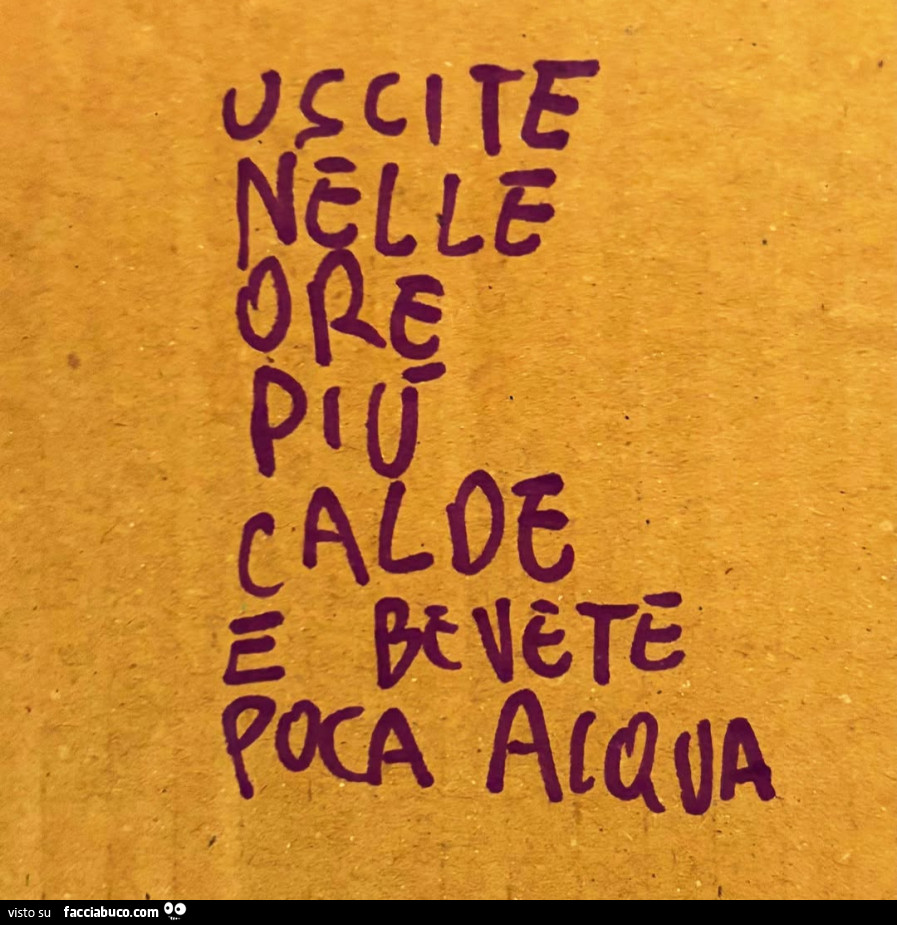 USCITE
NELLE
ORE
PIÚ
CALDE
E BEVETE
POCA ACQUA
visto su facciabuco.com